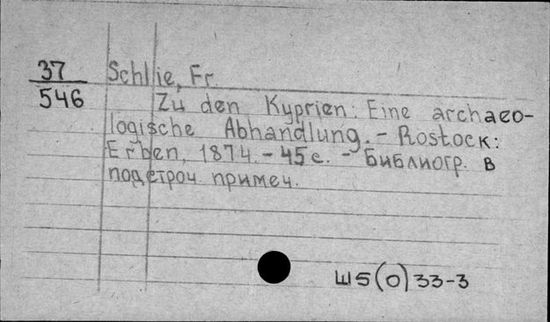 37
546
Schlie, Fr.
Zu den Kyprien: Eine archaeo-
logische Abhandlung. - Rostock:
Erben, 1874. - 45 с. - Библиогр. в
подстроч примеч.
Ш5(0)33-3